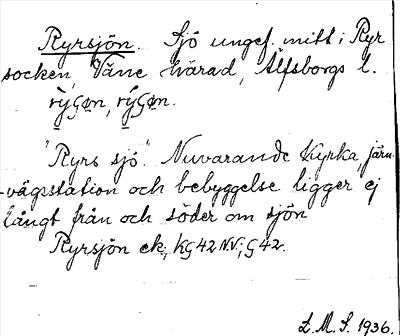 Ryrsjön. Sjö ungef. mitt i Ryr
socken, Väne härad, Älfsborgs l.
"Ryrs sjö". Nuvarande kyrka, järn-
vägsstation och bebyggelse ligger ej
långt från och söder om sjön
Ryrsjön ek, KG 42 N.V.; G 42.
L. M. S. 1936.